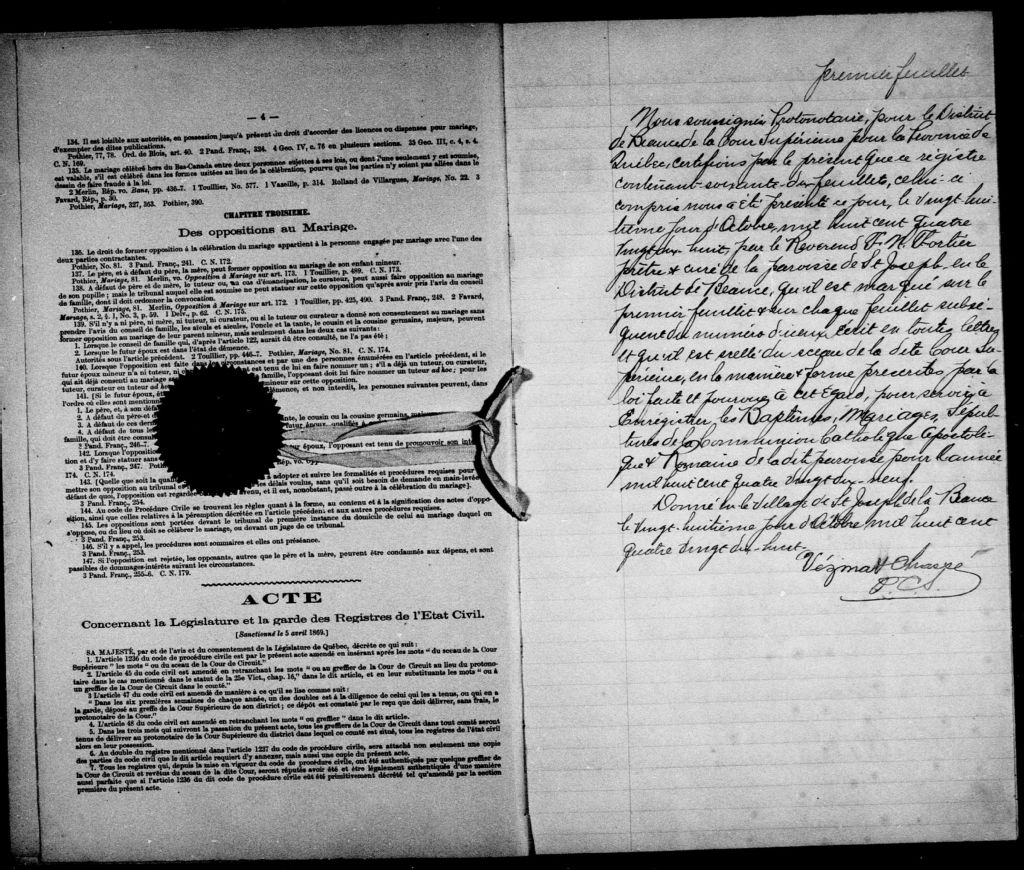 — 4 —
134. Il est loisible aux autorités, en possession jusqu'à présent du droit d'accorder des licences ou dispenses pour mariage,
d'exempter des dites publications.
Pothier, 77, 78. Ord. de Blois, art. 40. 2 Pand. Franç., 324. 4 Geo. IV, c. 76 en plusieurs sections. 35 Geo. III, c. 4, s. 4.
C. N. 169.
135. Le mariage célébré hors du Bas-Canada entre deux personnes sujettes à ses lois, ou dont l'une seulement y est soumise,
est valable, s'il est célébré dans les formes usitées au lieu de la célébration, pourvu que les parties n'y soient pas allées dans le
dessin de faire fraude à la loi.
2 Merlin, Rép. vo. Bans, pp. 436-7. 1 Touillier, No. 577. 1 Vazeille, p. 314. Rolland de Villargues, Mariage, No. 22. 3
Favard, Rép., p. 30.
Pothier, Mariage, 327, 363. Pothier, 390.
CHAPITRE TROISIEME.
Des oppositions au Mariage.
136. Le droit de former opposition à la célébration du mariage appartient à la personne engagée par mariage avec l'une des
deux parties contractantes.
Pothier, No. 81. 3 Pand. Franç., 241. C. N. 172.
137. Le père, et à défaut du père, la mère, peut former opposition au mariage de son enfant mineur.
Pothier, Mariage, 81. Merlin, vo. Opposition à Mariage sur art. 173. 1 Touillier, p. 489. C. N. 173.
138. A défaut de père et de mère, le tuteur ou, en cas d'émancipation, le curateur, peut aussi faire opposition au mariage
de son pupille; mais le tribunal auquel elle est soumise ne peut statuer sur cette opposition qu'après avoir pris l'avis du conseil
de famille, dont il doit ordonner la convocation.
Pothier, Mariage, 81. Merlin, Opposition à Mariage sur art. 172. 1 Touillier, pp. 425, 490. 3 Pand. Franç., 248. 2 Favard,
Mariage, s. 2, § 1, No. 3, p. 59. 1 Delv., p. 62. C. N. 175.
139. S'il n'y a ni père, ni mère, ni tuteur, ni curateur, ou si le tuteur ou curateur a donné son consentement au mariage sans
prendre l'avis du conseil de famille, les aïeuls et aïeules, l'oncle et la tante, le cousin et la cousine germains, majeurs, peuvent
former opposition au mariage de leur parent mineur, mais seulement dans les deux cas suivants:
1. Lorsque le conseil de famille qui, d'après l'article 122, aurait dû être consulté, ne l'a pas été;
2. Lorsque le futur époux est dans l'état de démence.
Autorités sous l'article précédent. 2 Touillier, pp. 446-7. Pothier, Mariage, No. 81. C. N. 174.
140. Lorsque l'opposition est faite par une des personnes énumérées en l'article précédent, si le
futur époux mineur n'a ni tuteur, ni est tenu de lui en faire nommer un; s'il a déjà un tuteur, ou curateur,
qui ait déjà consenti au mariage famille, l'opposant doit lui faire nommer un tuteur ad hoc; pour les
tuteur, curateur ou tuteur ad mineur sur cette opposition.
141. [Si le futur époux, démence, et non interdit, les personnes suivantes peuvent, dans
l'ordre où elles sont mentionnées
1. Le père, et, à son défaut
2. A défaut du père et ante, le cousin ou la cousine germains,
3. A défaut de ces derniers futur époux, qualifiés
4. A défaut de tous les
famille, qui doit être consulté
3 Pand. Franç., 246-7.
142. Lorsque l'opposition futur époux, l'opposant est tenu de promouvoir son
tion et d'y faire statuer sans
3 Pand. Franç., 247. Rép. vo.
174. C. N. 174.
143. [Quelle que soit la adopter et suivre les formalités et procédures requises pour
mettre son opposition au tribunal délais voulus, sans qu'il soit besoin de demande en main-levée
défaut de quoi, l'opposition est regardée venu, et il est, nonobstant, passé outre à la célébration du mariage].
3 Pand. Franç., 254.
144. Au code de Procédure Civile se trouvent les règles quant à la forme, au contenu et à la signification des actes d'oppo-
sition, ainsi que celles relatives à la péremption décrétée en l'article précédent et aux autres procédures requises.
145. Les oppositions sont portées devant le tribunal de première instance du domicile de celui au mariage duquel on
s'oppose, ou du lieu où doit se célébrer le mariage, ou devant un juge de ce tribunal.
3 Pand. Franç., 253.
146. S'il y a appel, les procédures sont sommaires et elles ont préséance.
3 Pand. Franç., 253.
147. Si l'opposition est rejetée, les opposants, autres que le père et la mère, peuvent être condamnés aux dépens, et sont
passibles de dommages-intérêts suivant les circonstances.
3 Pand. Franç., 255-6. C. N. 179.
ACTE
Concernant la Législature et la garde des Registres de l'Etat Civil.
[Sanctionné le 5 avril 1869.]
SA MAJESTÉ, par et de l'avis et du consentement de la Législature de Québec, décrète ce qui suit:
1. L'article 1236 du code de procédure civile est par le présent acte amendé en insérant après les mots "du sceau de la Cour
Supérieure" les mots "ou du sceau de la Cour de Circuit."
2. L'article 45 du code civil est amendé en retranchant les mots "ou greffier de la Cour de Circuit au lieu du protono-
taire dans le cas mentionné dans le statut de la 25e Vict., chap. 16," dans le dit article, et en leur substituant les mots "ou à
un greffier de la Cour de Circuit dans le comté."
3 L'article 47 du code civil est amendé de manière à ce qu'il se lise comme suit:
"Dans les six premières semaines de chaque année, un des doubles est à la diligence de celui qui les a tenus, ou qui en a
la garde, déposé au greffe de la Cour Supérieure de son district; ce dépôt est constaté par le reçu que doit délivrer, sans frais, le
protonotaire de la Cour."
4. L'article 48 du code civil est amendé en retranchant les mots "ou greffier" dans le dit article.
5. Dans les trois mois qui suivront la passation du présent acte, tous les greffiers de la Cour de Circuit dans tout comté seront
tenus de délivrer au protonotaire de la Cour Supérieure du district dans lequel ce comté est situé, tous les registres de l'état civil
alors en leur possession.
6. Au double du registre mentionné dans l'article 1237 du code de procédure civile, sera attaché non seulement une copie
des parties du code civil que le dit article requiert d'y annexer, mais aussi une copie du présent acte.
7. Tous les registres qui, depuis la mise en vigueur du code de procédure civile, ont été authentiqués par quelque greffier de
la Cour de Circuit et revêtus du sceau de la dite Cour, seront réputés avoir été et être légalement authentiqués d'une manière
aussi parfaite que si l'article 1236 du dit code de procédure civile eût été primitivement décrété tel qu'amendé par la section
première du présent acte.
premier feuillet
Nous soussignés Protonotaire, pour le District
de Beauce de la Cour Supérieure pour la Province de
Québec, certifions par le présent que ce régistre
contenant soixante-dix feuillets, celui-ci
compris nous a été présenté ce jour, le vingt hui-
tième jour d'Octobre, mil huit cent quatre
vingt dix huit, par le Révérend F. N. Fortier
prêtre & curé de la paroisse de St Joseph, en le
District de Beauce, qu'il est marqué sur le
premier feuillet & sur chaque feuillet subsé-
quent du numéro d'iceux écrit en toutes lettres
et qu'il est scellé du sceau de la dite Cour Su-
périeure, en la manière & forme prescrites par la
loi faite et pourvue à cet égard, pour servir à
Enrégistrer, les Baptêmes, Mariages, Sépul-
tures de la Communion Catholique Apostoli-
que & Romaine de la dite paroisse pour l'année
mil huit cent quatre vingt dix-neuf.
Donné en le Village de St Joseph de la Beauce
le vingt-huitième jour d'Octobre mil huit cent
quatre vingt dix-huit.
Vézina &
P. C. S.